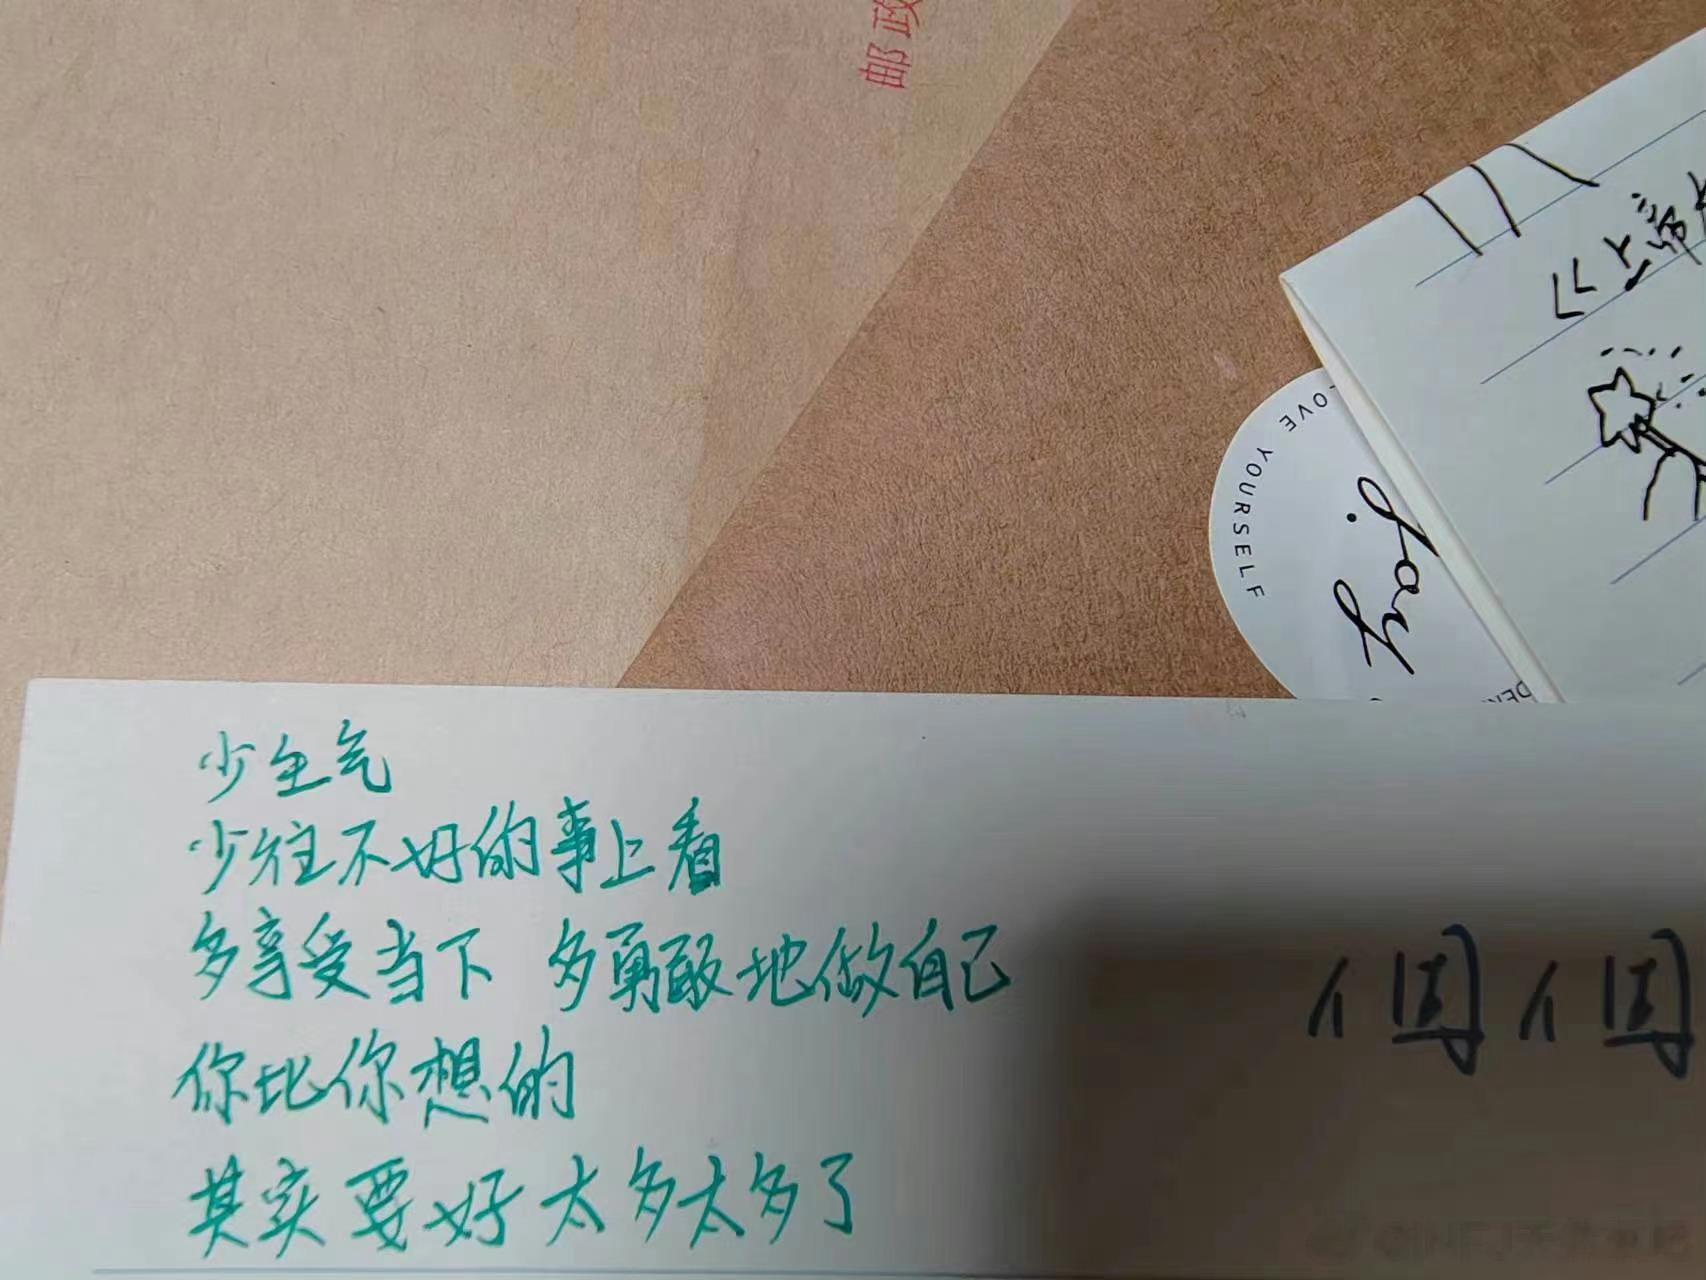 邮政
《上帝
LOVE YOURSELF
Joy
少生气
少往不好的事上看
多享受当下 多勇敢地做自己
你比你想的
其实要好太多太多了
個個